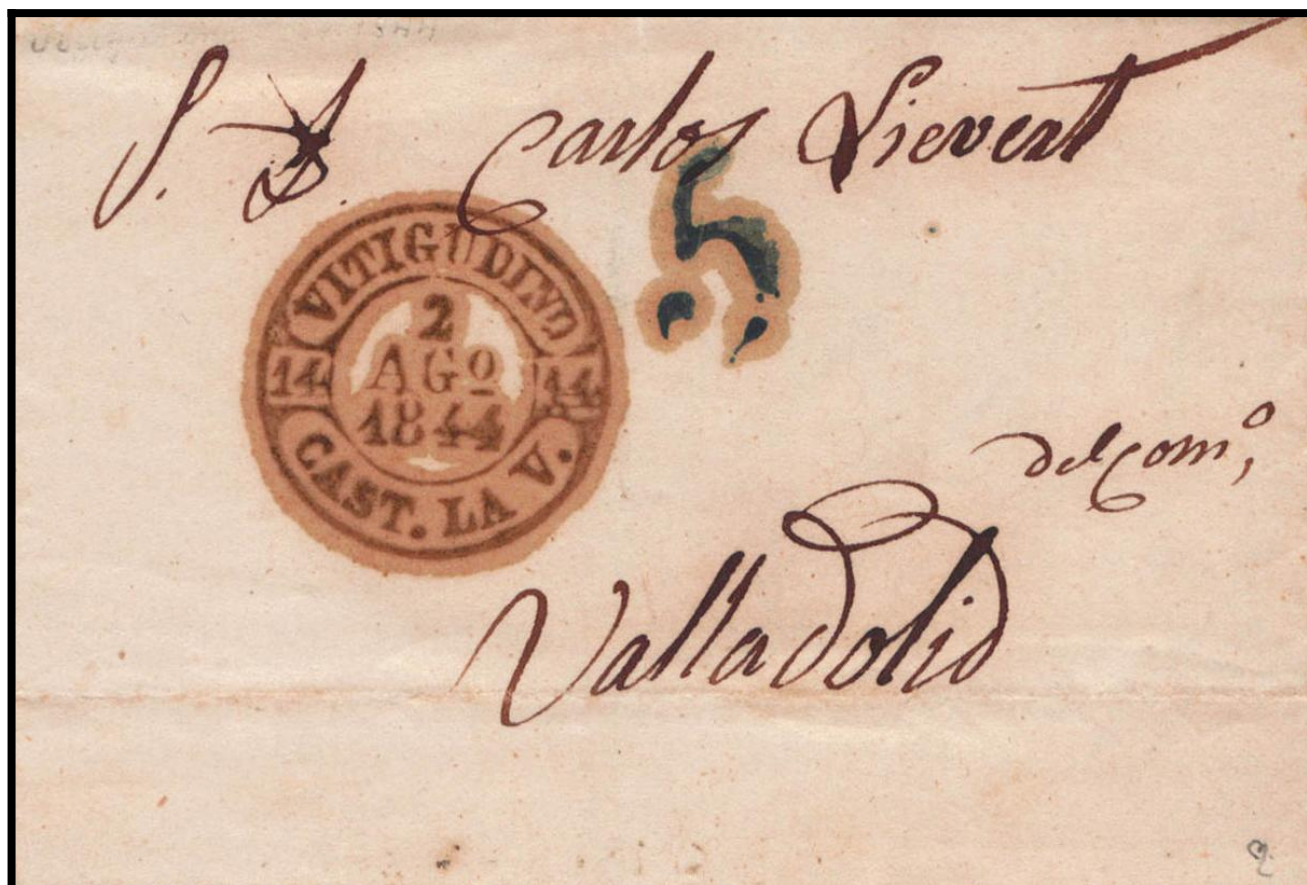 S. D. Carlos Lievert
5
VITIGUDINO
14 2 AGº 1844 14
CAST. LA V.
del comº,
Valladolid